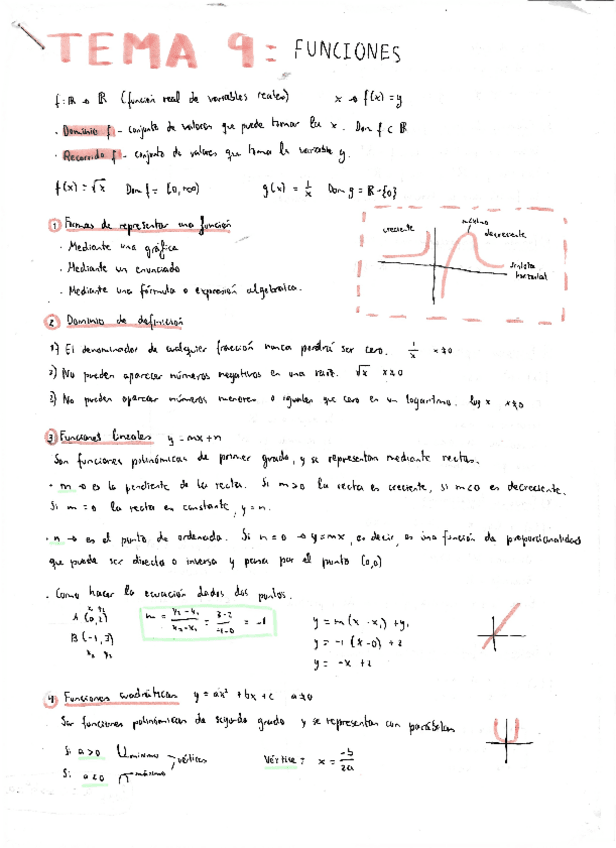 TEMA 9: FUNCIONES
f: ℝ → ℝ (función real de variables reales) x → f(x) = y
· Dominio f - conjunto de valores que puede tomar la x. Dom f ⊂ ℝ
· Recorrido f - conjunto de valores que toma la variable y.
f(x) = √x Dom f = [0, +∞) g(x) = 1/x Dom g = ℝ - {0}
1 Formas de representar una función
· Mediante una gráfica
· Mediante un enunciado
· Mediante una fórmula o expresión algebraica.
creciente
máximo
decreciente
asíntota
horizontal
2 Dominio de definición
1) El denominador de cualquier fracción nunca podrá ser cero. 1/x x≠0
2) No pueden aparecer números negativos en una raíz. √x x≥0
3) No pueden aparecer números menores o iguales que cero en un logaritmo. log x
3 Funciones lineales y = mx + n
Son funciones polinómicas de primer grado, y se representan mediante rectas.
· m → es la pendiente de la recta. Si m > 0 la recta es creciente, si m < 0 es decreciente.
Si m = 0 la recta es constante, y = n.
· n → es el punto de ordenada. Si n = 0 → y = mx, es decir, es una función de proporcionalidad
que puede ser directa o inversa y pasa por el punto (0,0)
· Como hacer la ecuación dados dos puntos.
x₁ y₁
A (0, 2)
B (-1, 3)
x₂ y₂
m = (y₂ - y₁)/(x₂ - x₁) = (3 - 2)/(-1 - 0) = -1
y = m (x - x₁) + y₁
y = -1 (x - 0) + 2
y = -x + 2
4 Funciones cuadráticas y = ax² + bx + c a≠0
Son funciones polinómicas de segundo grado y se representan con parábolas
Si a > 0 mínimo
vértices
Si a < 0 máximo
Vértice: x = -b/2a